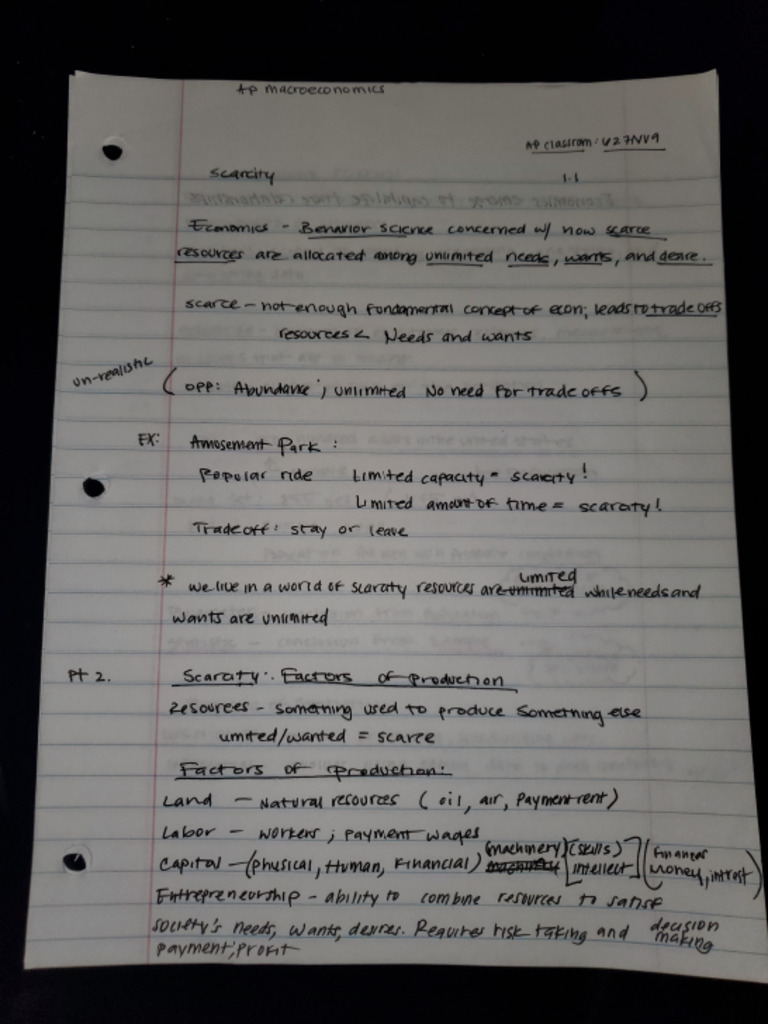 AP macroeconomics
AP classrom: U27NV9
scarcity 1.1
Economics - Behavior science concerned w/ how scarce
resources are allocated among unlimited needs, wants, and desire.
scarce - not enough fundamental concept of econ; leads to trade offs
resources < Needs and wants
un-realistic
(OPP: Abundance; unlimited No need for trade offs)
EX: Amusement Park:
Popular ride Limited capacity = scarcity!
Limited amount of time = scarcity!
Tradeoff: stay or leave
* we live in a world of scarcity resources are unlimited limited while needs and
wants are unlimited
Pt 2. Scarcity: Factors of production
Resources - something used to produce something else
limited/wanted = scarce
Factors of production:
Land - Natural resources (oil, air, payment rent)
Labor - workers; payment wages
Capital - (physical, Human, Financial) (machinery) [(skills) intellect] (Finances Money, intrest)
Entrepreneurship - ability to combine resources to satisf
society's needs, wants, desires. Requires risk taking and decision making
payment; profit